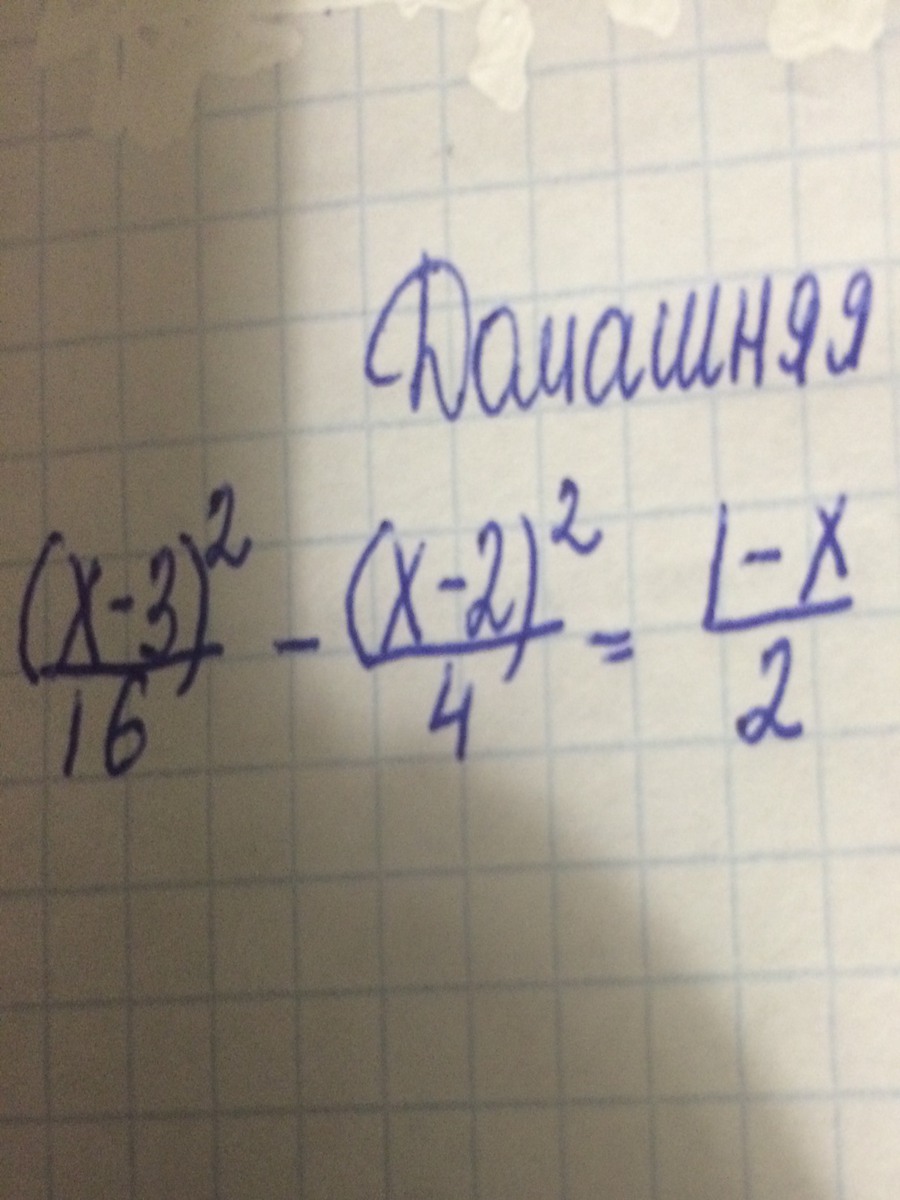 Домашняя
(x-3)²/16 - (x-2)²/4 = 1-x/2